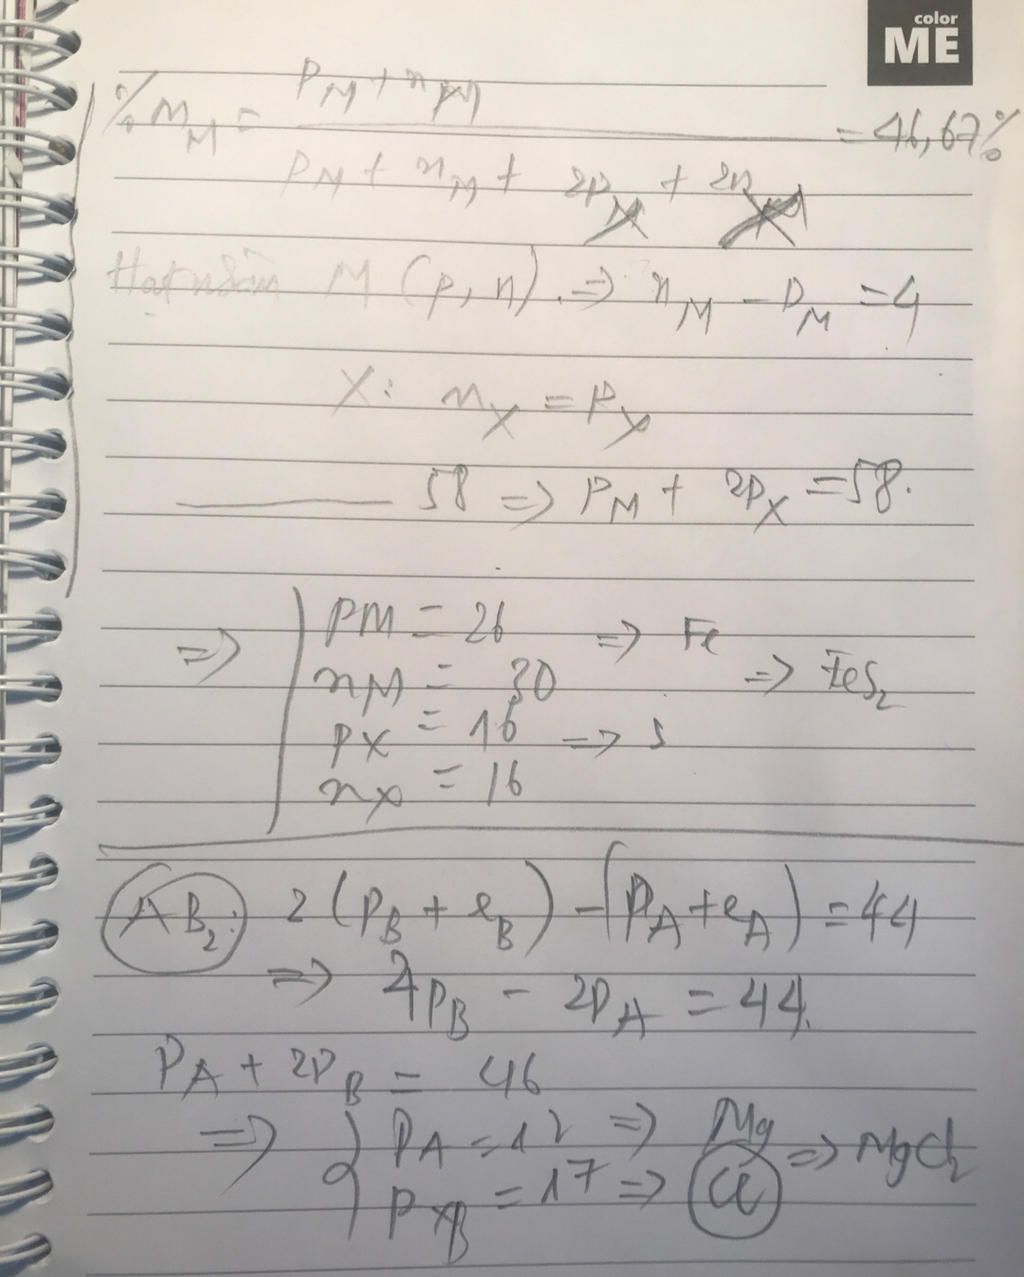 color
ME
% m_M = (p_M + n_M) / (p_M + n_M + 2p_X + 2n_X) = 46,67%
Hạt nhân M (p, n). => n_M - p_M = 4
X: n_X = p_X
58 => p_M + 2p_X = 58.
=> pM = 26 => Fe
nM = 30 => FeS₂
pX = 16 => S
nX = 16
AB₂: 2(p_B + e_B) - (p_A + e_A) = 44
=> 4p_B - 2p_A = 44.
p_A + 2p_B = 46
=> { p_A = 12 => Mg => MgCl₂
p_B = 17 => Cl